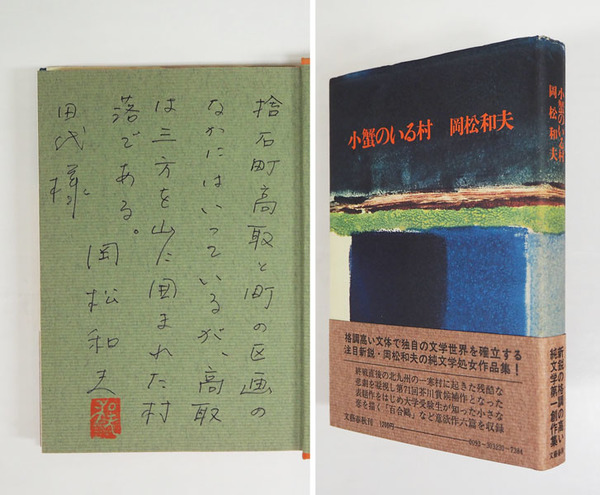 捨石町高取と町の区画の
なかにはいっているが、高取
は三方を山に囲まれた村
落である。
岡松和夫
田代様
小蟹のいる村 岡松和夫
小蟹のいる村
岡松和夫
格調高い文体で独自の文学世界を確立する
注目新鋭・岡松和夫の純文学処女作品集!
終戦直後の北九州の一寒村に起きた残酷な
悲劇を凝視し第71回芥川賞候補作となった
表題作をはじめ大学受験生が知った小さな
悪を描く「百合鷗」など意欲作六篇を収録
文藝春秋刊 1200円
0093-303231-7384
新鋭の格調の高い
純文学第一創作集
文藝春秋